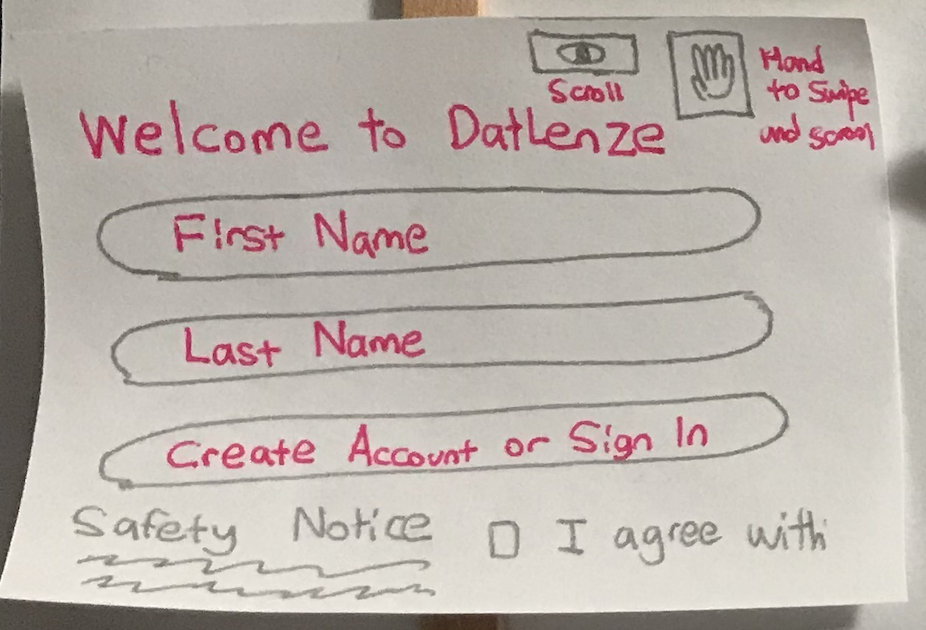 Scroll
Hand
to Swipe
and scrool
Welcome to DatLenze
First Name
Last Name
Create Account or Sign In
Safety Notice
I agree with